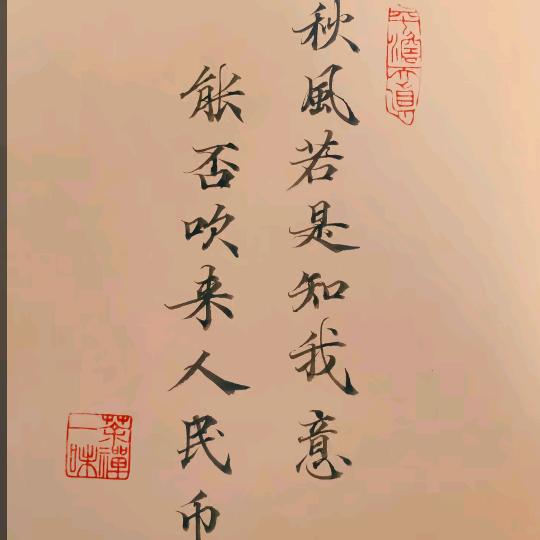 秋風若是知我意
能否吹来人民币
茶禪
一味